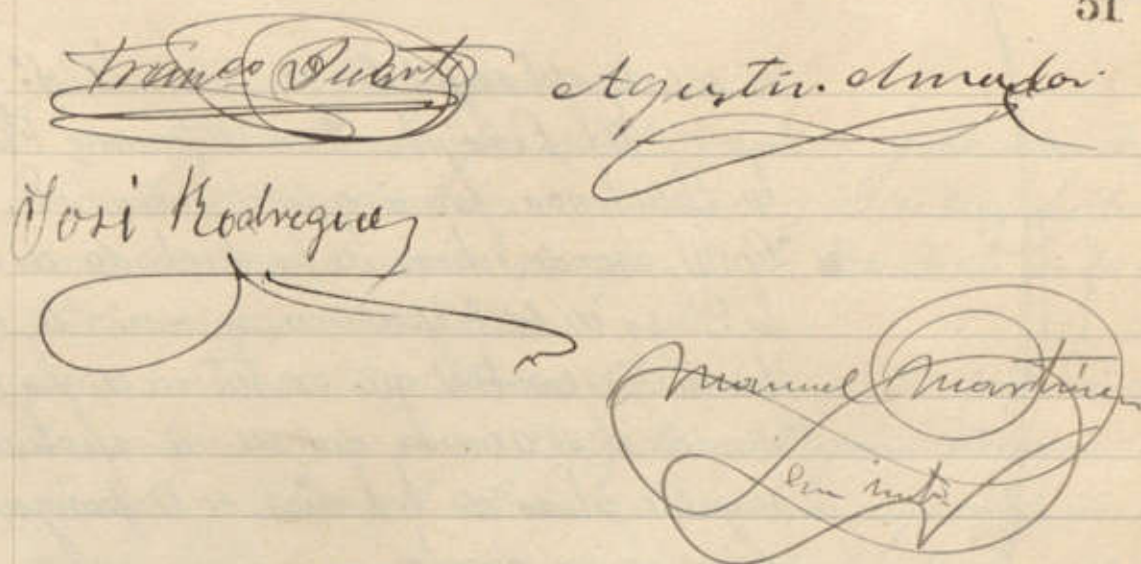 51
Franco Duarte Agustin. Amador
José Rodriguez
Manuel Martinez